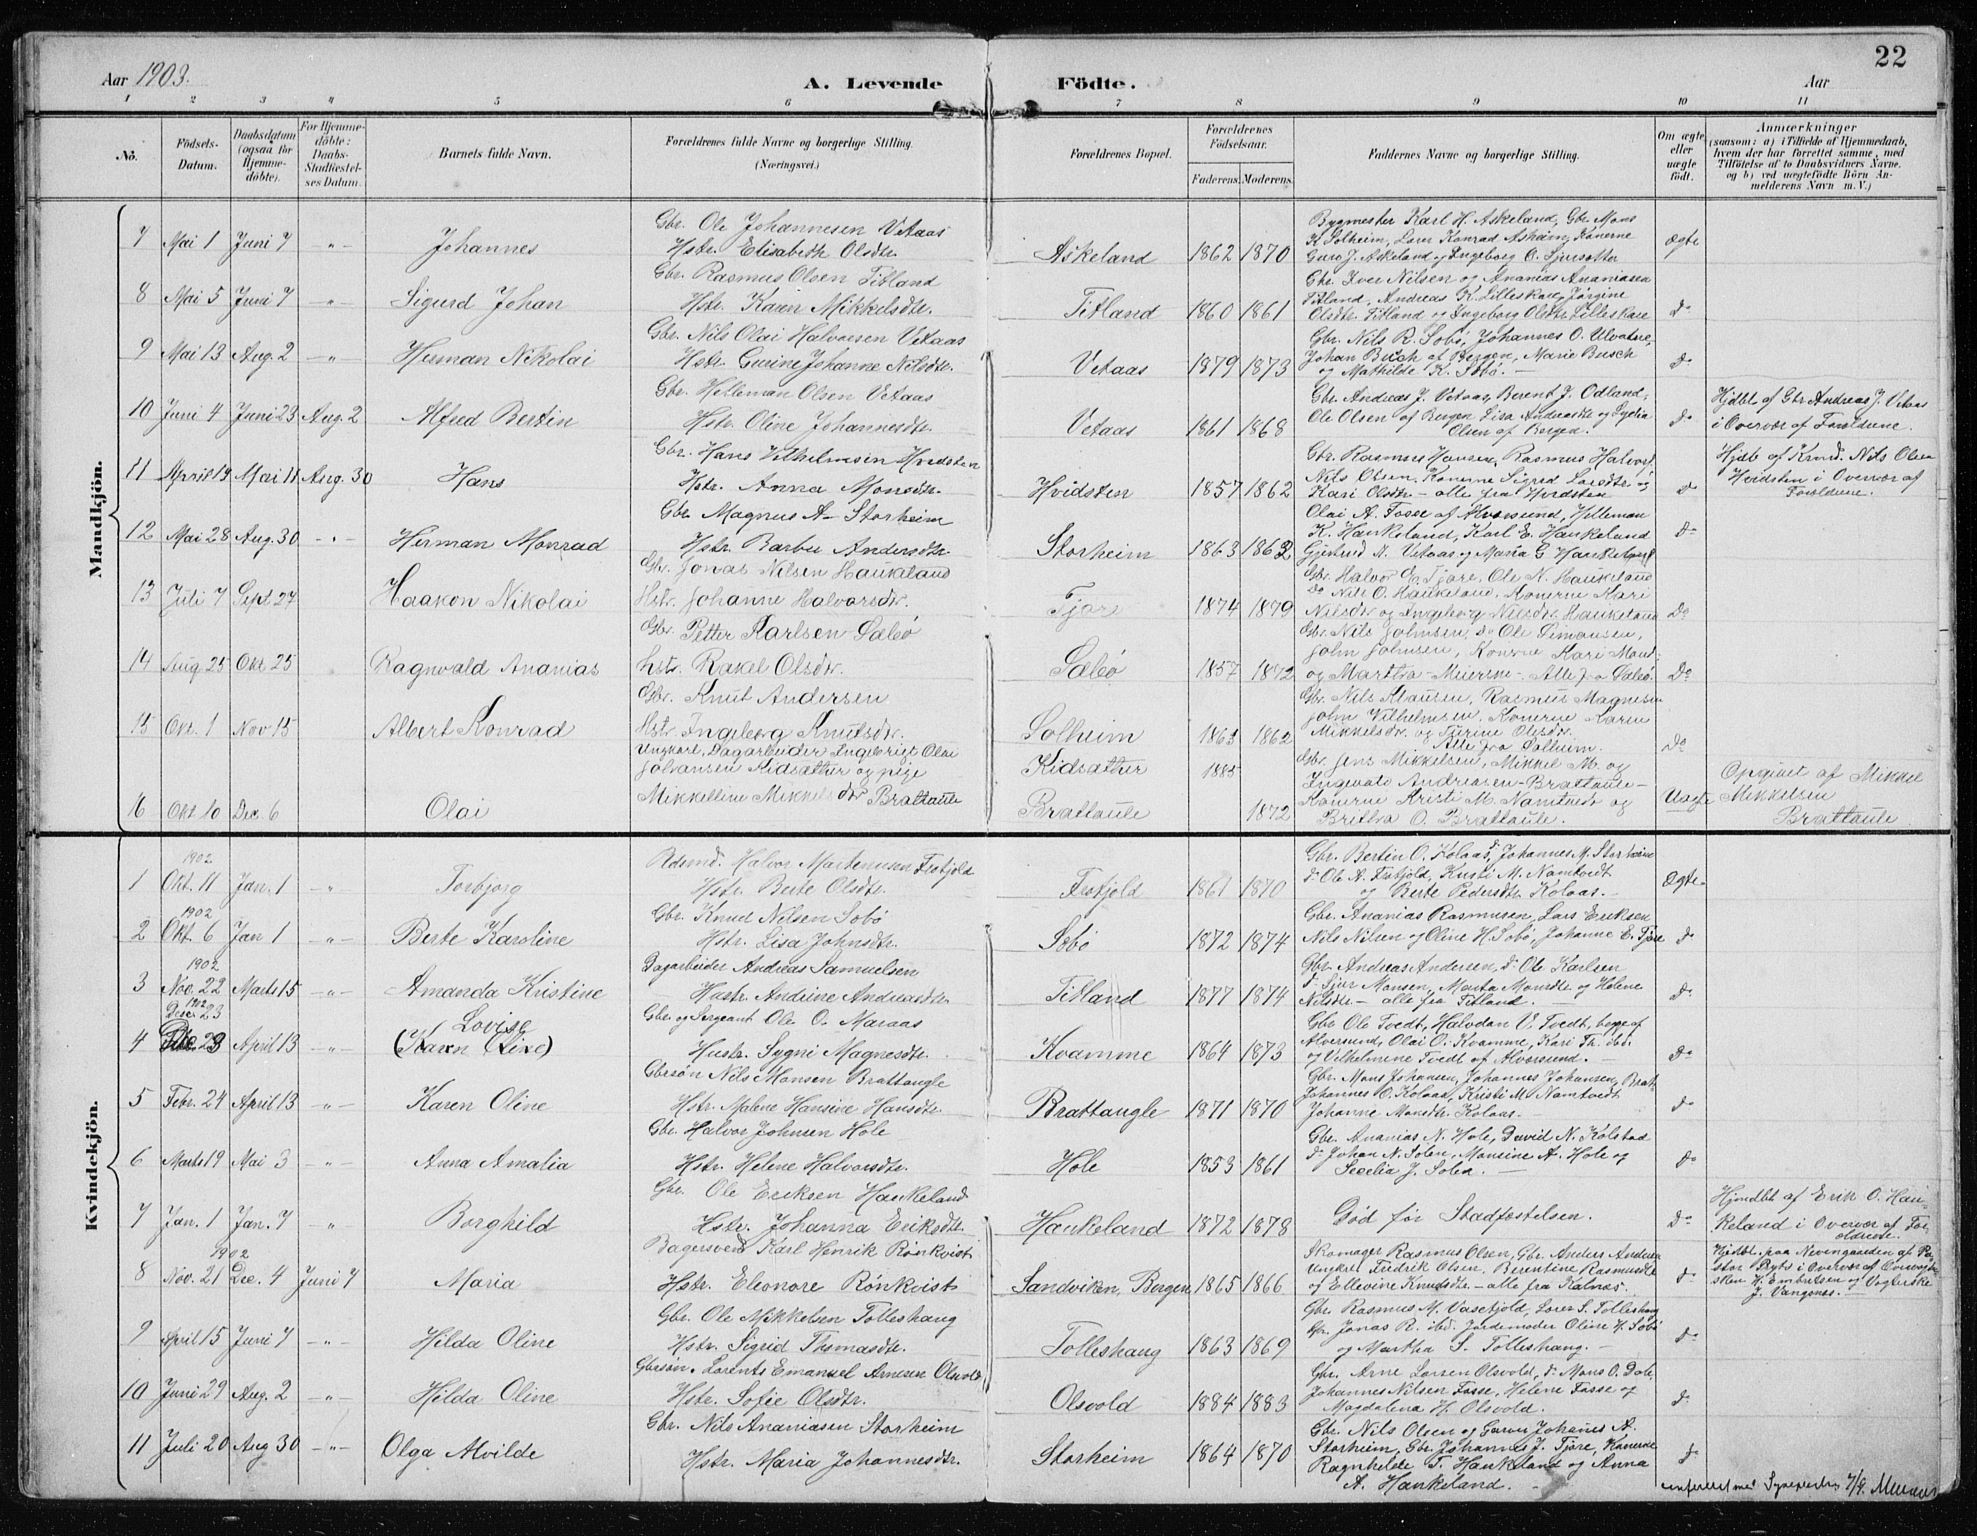 22
Aar 1903.
A. Levende Födte.
Aar
1 2 3 4 5 6 7 8 9 10 11
No.
Födsels-Datum.
Daabsdatum (ogsaa for Hjemme-döbte).
For Hjemme-döbte: Daabs-Stadfæstel-ses Datum.
Barnets fulde Navn.
Forældrenes fulde Navne og borgerlige Stilling. (Næringsvei.)
Forældrenes Bopæl.
Forældrenes Födselsaar.
Faderens. Moderens.
Faddernes Navne og borgerlige Stilling.
Om ægte eller uægte födt.
Anmærkninger
(saasom: a) i Tilfælde af Hjemmedaab, hvem der har forrettet samme, med Tilföielse af to Daabsvidners Navne, og b) ved uægtefödte Börn Anmelderens Navn m. V.)
Mandkjön.
7 Mai 1 Juni 7 -"- Johannes Gbr. Ole Johannesen Vetaas Hstr. Elisabeth Olsdtr. Askeland 1862 1870 Bygmester Karl H. Askeland, Gbr. Mons K. Solheim, Lærer Konrad Askeim, Konerne Guro J. Askeland og Ingeborg O. ægte
8 Mai 5 Juni 7 -"- Sigurd Johan Gbr. Rasmus Olsen Titland Hstr. Karen Mikkelsdtr. Titland 1860 1861 Gbr. Iver Nilsen og Ananias Ananiasen Titland, Andreas K. Lilleskare, Jørgine Olsdtr. Titland og Ingeborg Olsdtr. Lilleskare do
9 Mai 13 Aug. 2 -"- Herman Nikolai Gbr. Nils Olai Halvorsen Vetaas Hstr. Gurine Johanne Nilsdtr. Vetaas 1879 1873 Gbr. Nils R. Sobø, Johannes O. Ulvatne, Johan Busch af Bergen, Marie Busch og Mathilde K. Sobø. - do
10 Juni 4 Juni 23 Aug. 2 Alfred Bertin Gbr. Hilleman Olsen Vetaas Hstr. Oline Johannesdtr. Vetaas 1861 1868 Gbr. Andreas J. Vetaas, Berent J. Odland, Ole Olsen af Bergen, Lisa Andreasdtr og Lydia Olsen af Bergen. do Hjdbt af Gbr Andreas J. Vetaas i Overvær af Forældrene.
11 April 19 Mai 11 Aug. 30 Hans Gbr. Hans Vilhelmsen Hvidsten Hstr. Anna Monsdtr. Hvidsten 1857 1862 Gbr. Rasmus Hansen, Rasmus Halvors. Nils Olsen, Konerne Sigrid Larsdtr. og Kari Olsdtr. - alle fra Hvidsten do Hjdb af Nils Olsen Hvidsten i Overvær af Forældrene.
12 Mai 28 Aug. 30 -"- Herman Monrad Gbr. Magnus A. Storheim Hstr. Barbro Andersdtr Storheim 1863 1862 Olai A. Fosse af Alversund, Hilleman K. Haukeland, Karl E. Haukeland Gjertrud N. Vetaas og Maria G Haukeland do
13 Juli 7 Sept 27 Haakon Nikolai Gbr. Jonas Nilsen Haukeland Hstr. Johanne Halvorsdtr. Tjore 1874 1879 Gbr. Halvor E. Tjore, Ole N. Haukeland do Nils O. Haukeland, Konerne Kari Nilsdtr og Ingeborg Nilsdtr. Haukeland Do
14 Aug 25 Okt 25 Ragnvald Ananias Gbr. Petter Karlsen Sæbø hstr. Rakel Olsdtr. Sæbø 1857 1872 Gbr. Nils Johnsen, do Ole Simonsen, John Johnsen, Konerne Kari Monsd og Martha Meierine. Alle fra Sæbø. Do
15 Okt. 1 Nov 15 Albert Konrad Gbr. Knut Andersen Hstr. Ingeborg Knutsdtr. Solheim 1863 1862 Gbr. Nils Klausen, Rasmus Magnesen John Vilhelmsen, Konerne Karen Mikkelsdtr. og Turine Olesdtr. Alle fra Solheim. Do
16 Okt 10 Dec. 6 Olai Ungkarl, Dagarbeider Ingebrigt Olai Johansen Kidsæther og pige Mikkelline Mikkelsdtr Brattaule Kidsæther Brattaule 1885 1872 Gbr. Jens Mikkelsen, Mikkel M. og Ingvald Andreasen Brattaule - Konerne Kristi M. Namtvedt og Britha O. Brattaule. Uægte Opgivet af Mikkel Mikkelsen Brattaule
Kvindekjön.
1 1902 Okt. 11 Jan. 1 -"- Torbjørg Halvor Martenusen Frotjold Hstr. Berte Olsdtr. Frotjold 1861 1870 Gbr. Bertin O. Kolaas, do Johannes M. Storheim do Ole A. Frotjold, Kristi M. Namtvedt og Berte Pedersdtr Kolaas. - Ægte
2 1902 Okt. 6 Jan 1 -"- Berte Karoline Gbr. Knud Nilsen Sobø Hstr. Lisa Johnsdtr. Sobø 1872 1874 Gbr. Ananias Rasmusen, Lars Eriksen Nils Nilsen og Oline H. Sobø, Johanne E. Tjore do
3 1902 Nov. 22 Marts 15 -"- Amanda Kristine Dagarbeider Andreas Samuelsen Hustr. Andrine Andreasdtr. Titland 1877 1874 Gbr. Andreas Andersen, do Ole Karlsen do Sjur Monsen, Marta Monsdtr og Helene Nilsdtr - alle fra Titland. - do
4 1902 Dese. 23 April 13 " Lovise (Karen Oline) Gbr. og Sergeant Ole O. Maraas Hustr. Sygni Magnesdtr. Kvamme 1864 1873 Gbr Ole Tvedt, Halvdan V. Tvedt, begge af Alversund, Olai O. Kvamme, Kari Th. ibd. og Vilhelmine Tvedt af Alversund. - do
5 Febr. 24 April 13 -"- Karen Oline Gbrsøn Nils Monsen Brattaugle Hstr. Malene Hansine Hansdtr. Brattaugle 1871 1870 Gbr. Mons Johansen, Johannes Johansen, Bratt. Johannes O. Kolaas, Kristi M. Namtvedt Johanne Monsdtr. Kolaas. - do
6 Marts 19 Mai 3 -"- Anna Amalia Gbr. Halvor Johnsen Hole Hstr. Helene Halvorsdtr. Hole 1853 1861 Gbr. Ananias N. Hole, David N. Kolstad do Johan N. Solen, Monsine A. Hole og Secelia J. Solen. - do
7 Jan. 1 Jan. 7 " Borghild Gbr. Ole Eriksen Haukeland Hstr. Johanna Eriksdtr. Haukeland 1872 1878 Død før Stadfæstelsen. do Hjmdbt af Erik O. Haukeland i Overvær af Forældrene.
8 1902 Nov. 21 Dec. 4 Juni 7 Maria Bagersvend Karl Henrik Rönkvist Hstr. Eleonore Rönkvist Sandviken, Bergen 1865 1866 Skomager Rasmus Olsen, Gbr. Anders Andersen Ungkarl Fredrik Olsen, Berentine Rasmusdtr og Ellevine Knudsdtr. - alle fra Kalnæs. do Hjdbt. paa Nevengaarden af Pastor Rybs i Overvær af H. Embretsen og Vogterske J. Vangsnes. -
9 April 15 Juni 7 -"- Hilda Oline Gbr. Ole Mikkelsen Tolleshaug Hstr. Sigrid Thomasdtr. Tolleshaug 1863 1869 Gbr. Rasmus M. Vasetjold, Lærer S. Tolleshaug Gbr. Jonas R. ibd. Jordemoder Oline H. Sobø og Martha S. Tolleshaug. - do
10 Juni 29 Aug. 2 -"- Hilda Oline Gbrsøn. Lorents Emanuel Arnesen Olsvold Hstr. Sofie Olsdtr. Olsvold 1884 1883 Gbr. Arne Larsen Olsvold, do Mons O. Dale Johannes Nilsen Fosse, Helene Fosse og Magdalena H. Olsvold. do
11 Juli 20 Aug 30 -"- Olga Alvilde Gbr. Nils Ananiasen Storheim Hstr. Maria Johannesdtr. Storheim 1864 1870 Gbr. Nils Olsen og Johanes A. Storheim, Gbr. Johannes J. Tjore, Konerne Ragnhilde T. Haukeland og Anna A. Haukeland. do